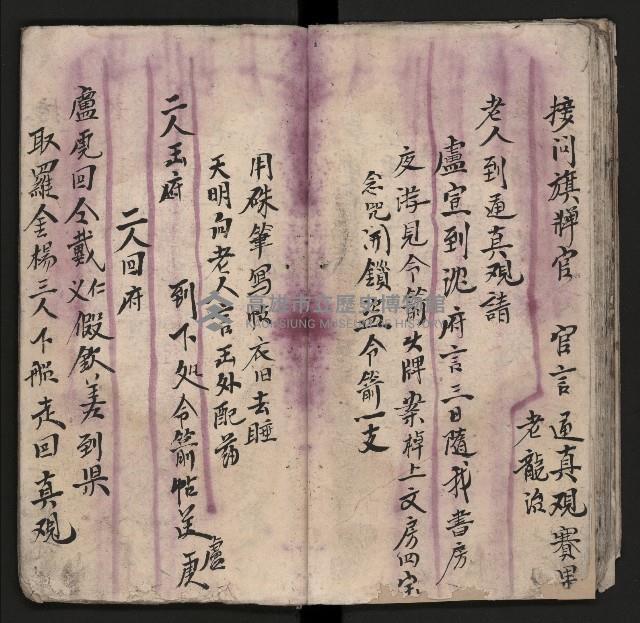 接问旗牌官 官言通真观賽果
老龍治
老人到通真观請
盧宣到沈府言三日隨我書房
夜游見令箭火牌案棹上文房四宝
念咒開鎖盜令箭一支
用硃筆寫假衣旧去睡
天明向老人言出外配葯
二人出府 到下处令箭帖送盧更
二人回府
盧虎回令戴仁义假欽差到果
取羅金楊三人下船走回真观
高雄市立歷史博物館
KAOHSIUNG MUSEUM OF HISTORY